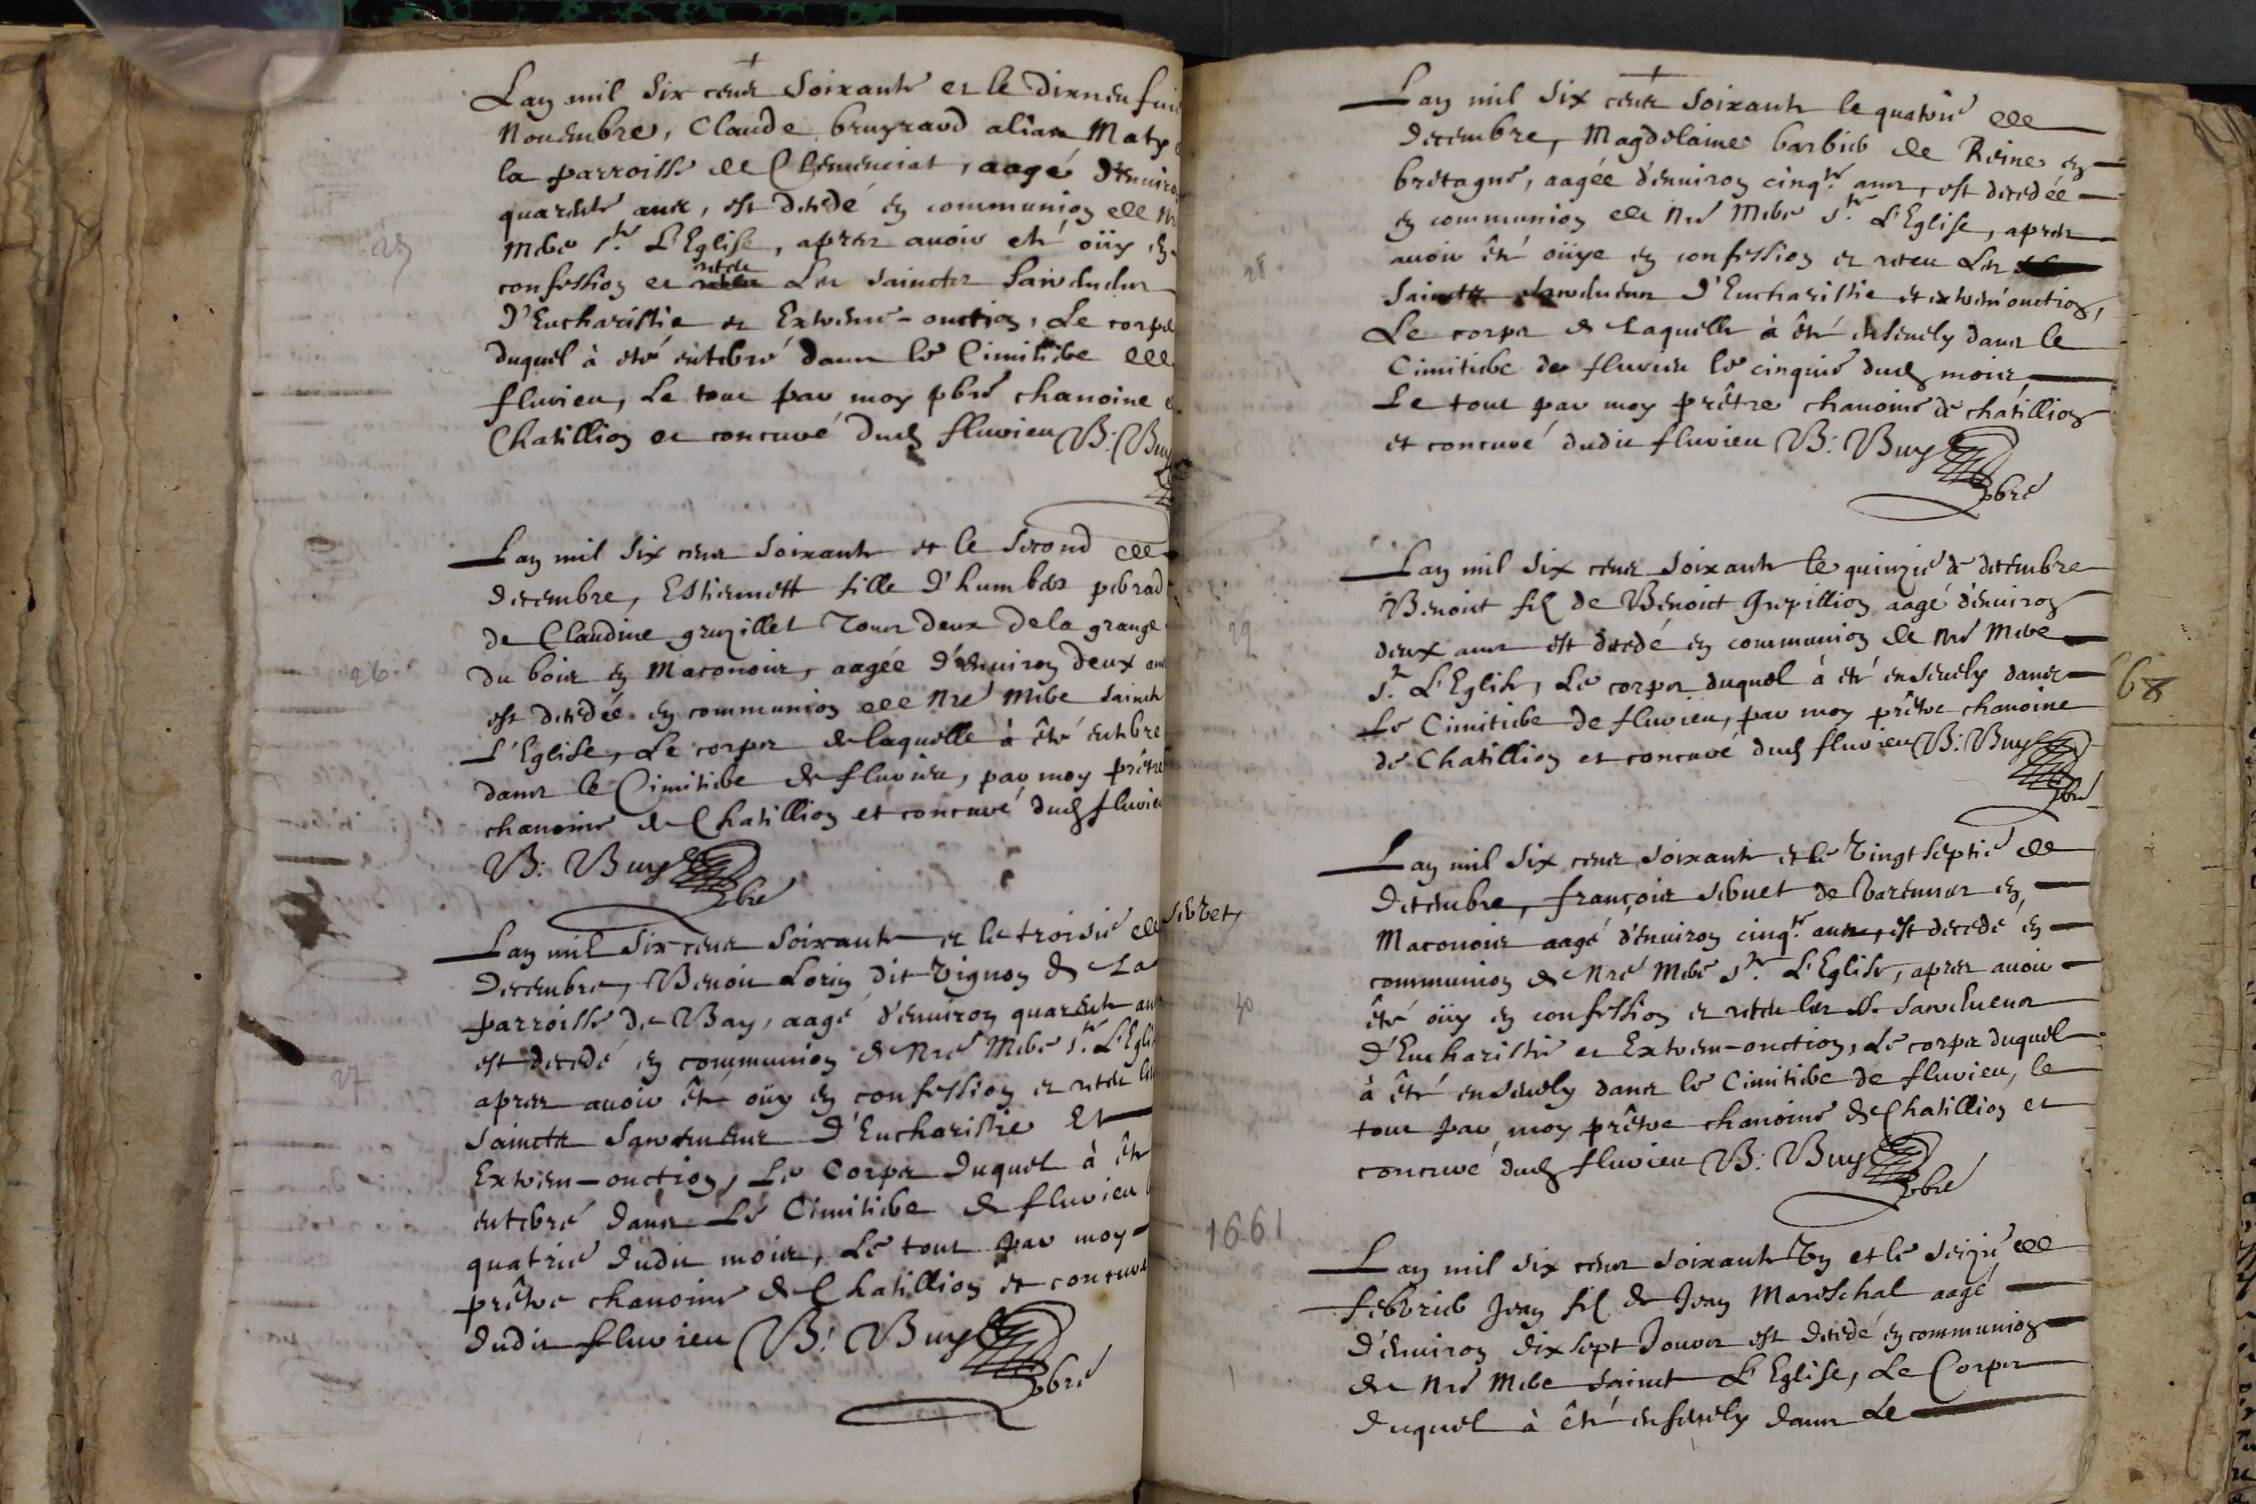 Lan mil six cens soixante et le dixneufui
Nouembre, Claude bruyraud alias Maty
la parroisse de Clemenciat, aagé d'enuiro
quarente ans, est decedé en communion de nr
Mere Ste L'Eglise, apres auoir eté oüy en
25
confession et receu Les saincts Sacremens
D'Eucharistie et Extreme-onction, Le corps
duquel à eté enterré dans le Cimitiere de
fluirieu, Le tout par moy pbre chanoine
Chatillion et concuré dud fluirieu B: Buy
Lan mil six cens soixante et le second de
decembre, Estiennette fille d'humbert pebrad
de Claudine gruzillet Tous deux de la grange
du bois en Maconois, aagée d'enuiron deux ans
26
est decedée en communion de nre Mere saincte
L'Eglise, Le corps de laquelle à êté enterre
dans le Cimitiere de fluirieu, par moy prêtre
chanoine de Chatillion et concuré dud fluirieu
B: Buy
pbre
Lan mil six cens soixante et le troisie de
Decembre, Benoit Lorin dit Vignon de La
parroisse de Bay, aagé d'enuiron quarente ans
est decedé en communion de Nre Mere Ste L'Egli
27
apres auoir êté oüy en confession et receu les
saincts Sacremens D'Eucharistie Et
Extrem-onction, Le Corps Duquel à êté
enterré dans Le Cimitiere de fluirieu
quatrie dudit mois, Le tout par moy
prêtre chanoine de Chatillion et concuré
dudit fluirieu B: Buy
pbre
Lan mil six cens soixante le quatrie de
decembre, Magdelaine barbier de Reine en
bretagne, aagée d'enuiron cinqte ans, est decedée
en communion de Nre Mere Ste L'Eglise, apres
28
auoir êté oüye en confession et receu Les
saincts Sacremens D'Eucharistie et extrem'onction,
Le corps de Laquelle à êté enseuely dans le
Cimitiere de fluirieu le cinquie dud mois,
Le tout par moy prêtre chanoine de chatillion
et concuré dudit fluirieu B: Buy
pbre
Lan mil six cens soixante le quinzie de decembre
Benoit fil de Benoit Grepillion aagé d'enuiron
29
deux ans est decedé en communion de Nre Mere
Ste L'Eglise, Le corps duquel à eté enseuely dans
68
Le Cimitiere de fluirieu, par moy prêtre chanoine
de Chatillion et concuré dud fluirieu B: Buy
pbre
Lan mil six cens soixante et le Vingt septie de
Decembre, françois sebuet de Varennes en
Maconois aagé d'enuiron cinqte ans, est decedé en
communion de Nre Mere Ste L'Eglise, apres auoir
30
êté oüy en confession et receu les Sts sacremens
d'Eucharistie et Extrem-onction, Le corps duquel
à êté enseuely dans le Cimitiere de fluirieu, le
tout par moy prêtre chanoine de Chatillion et
concuré dud fluirieu B: Buy
pbre
1661
Lan mil six cens soixante Un et le seizie de
febvrier Jean fil de Jean Mareschal aagé
d'enuiron dix sept Jours est decedé en communion
1
de Nre Mere saincte L'Eglise, Le Corps
Duquel à êté enseuely dans Le